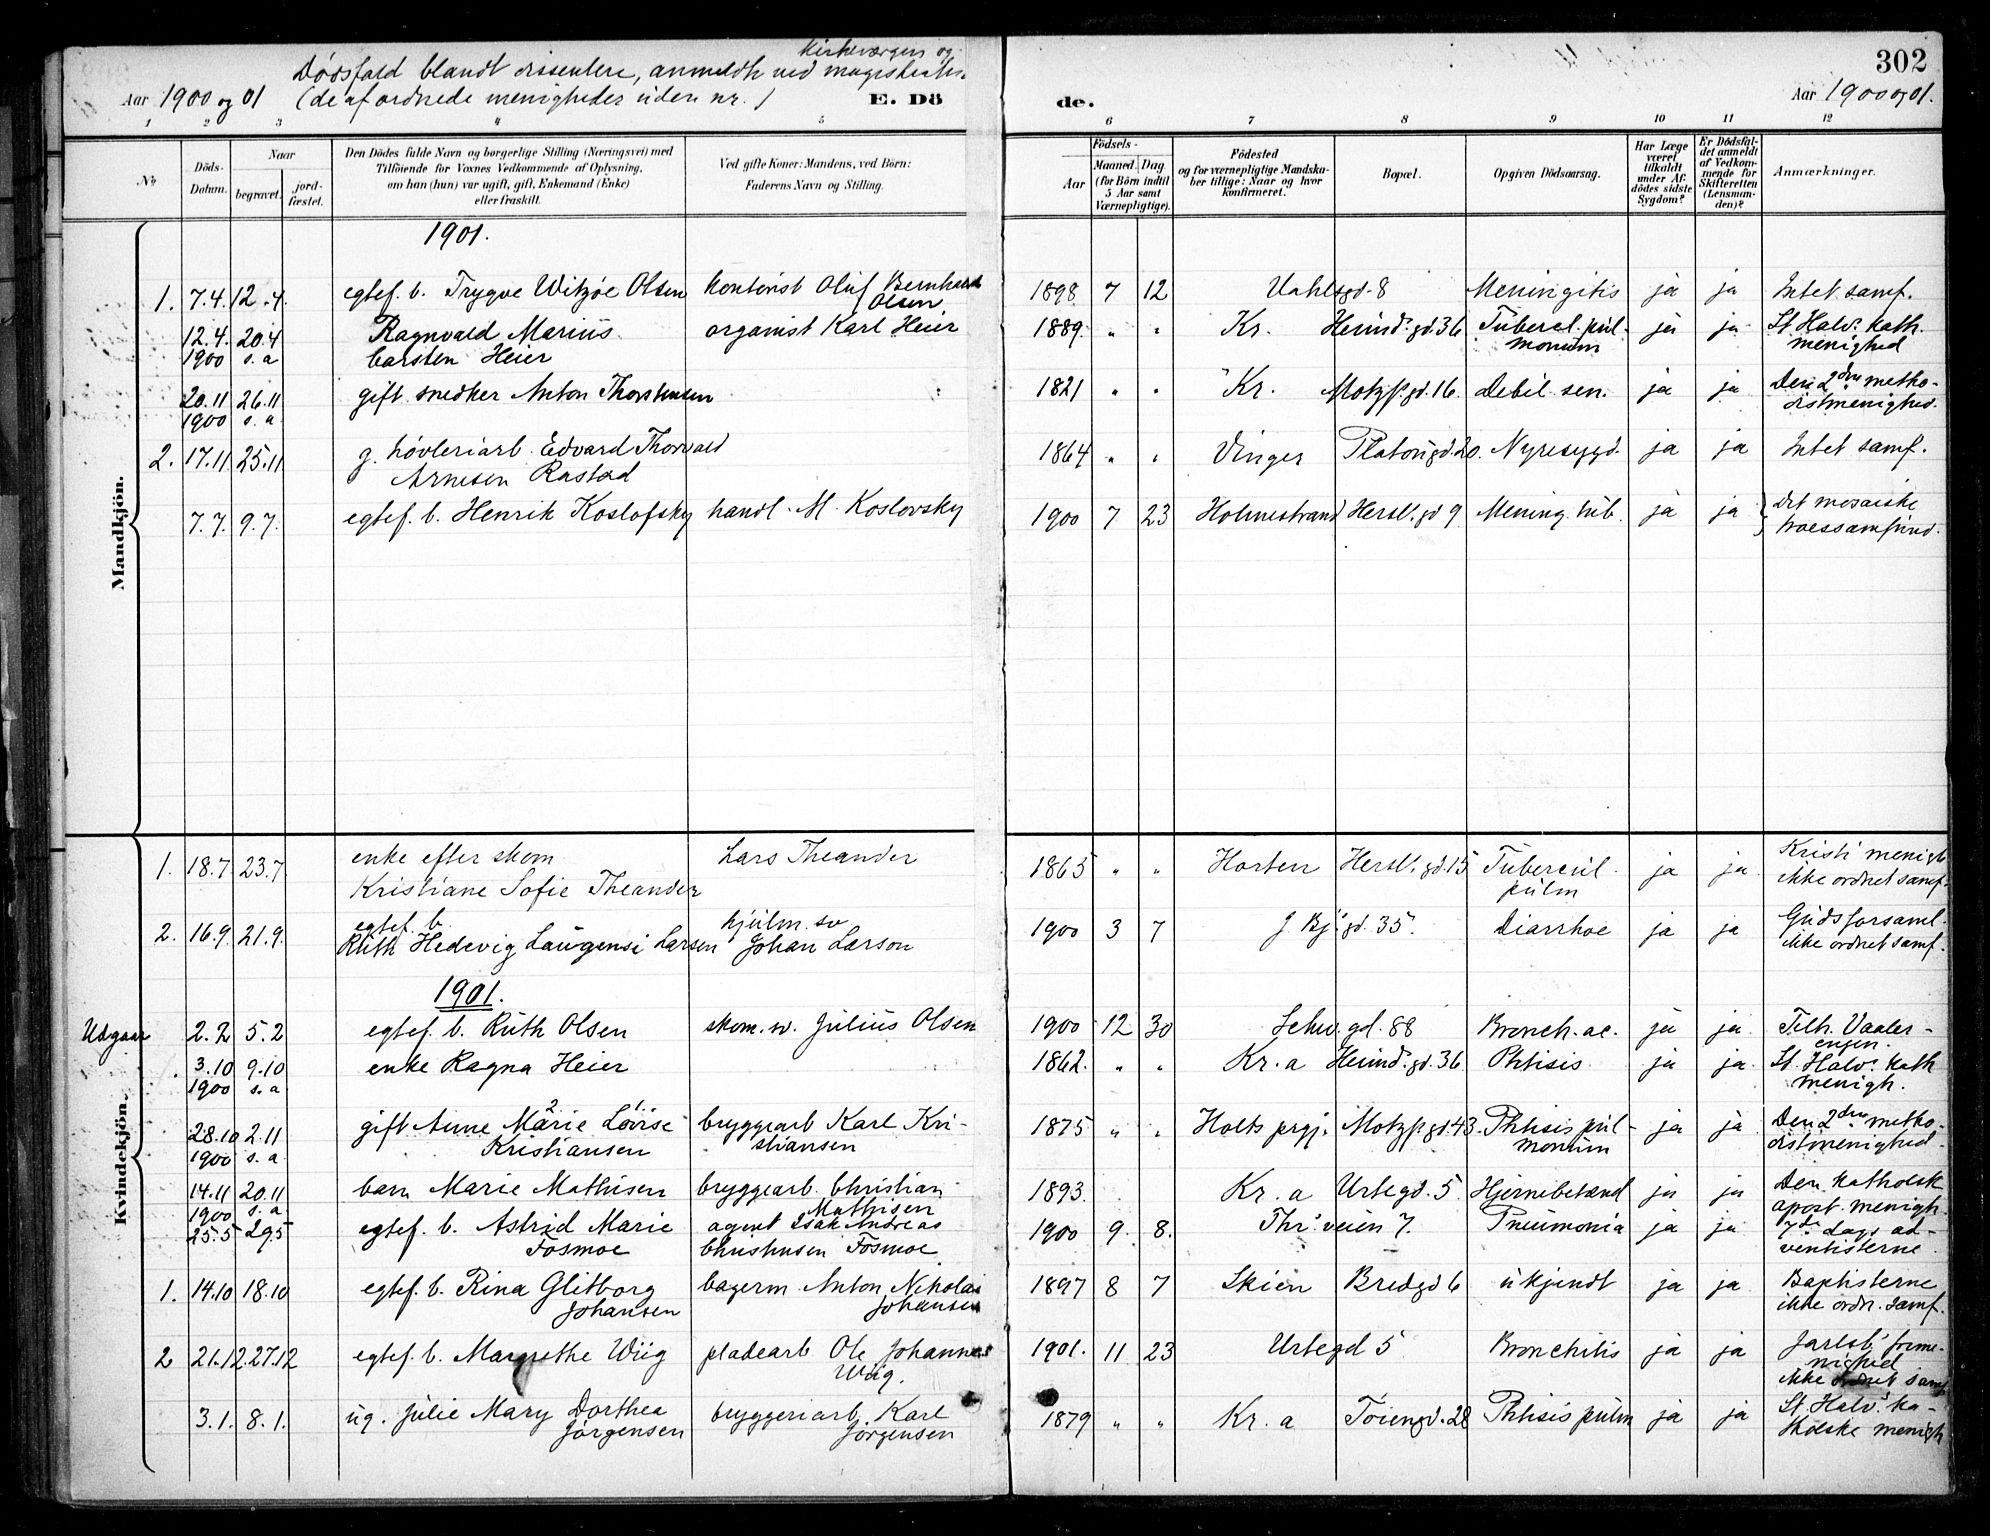 302
Kirkeværgen og
Dödsfald blandt dissentere, anmeldte ved magistraten
Aar 1900 og 01 (de af ordnede menigheder uden nr.) E. Dö
de. Aar 1900 og 01.
1 2 3 4 5 6 7 8 9 10 11 12
No Döds-Datum. Naar begravet. jordfæstet.
Den Dödes fulde Navn og borgerlige Stilling (Næringsvei) med
Tilföiende for Voxnes Vedkommende af Oplysning,
om han (hun) var ugift, gift, Enkemand (Enke)
eller fraskilt.
Ved gifte Koner: Mandens, ved Börn:
Faderens Navn og Stilling.
Födsels-
Aar Maaned. Dag.
(for Börn indtil
5 Aar samt
Værnepligtige).
Födested
og for værnepligtige Mandskaber tillige: Naar og hvor
konfirmeret.
Bopæl.
Opgiven Dödsaarsag.
Har Læge
været
tilkaldt
under Afdödes sidste
Sygdom?
Er Dödsfaldet anmeldt
af Vedkommende for
Skifteretten
(Lensmanden)?
Anmærkninger.
Mandkjön.
1901.
1. 7.4. 12.4. egtef. b. Trygve Witzøe Olsen kontorist Oluf Bernhard Olsen 1898 7 12 Vahlsgd. 8 Meningitis ja ja Intet samf.
12.4. 1900 20.4 s.a Ragnvald Marius Carsten Heier organist Karl Heier 1889. " " Kr. Heimd.gd. 36 Tubercl. pulmonum ja ja St. Halv. kath. menighed
20.11 1900 26.11 s.a gift snedker Anton Thorstensen 1821 " " Kr. Motzf.gd. 16. Debil. sen. ja ja Den 2den methodistmenighed.
2. 17.11 25.11 g. høvleriarb. Edvard Thorvald Arnesen Rastad 1864 " " Vinger Platougd. 20. Nyresygd. ja ja Intet samf.
7.7. 9.7. egtef. b. Henrik Koslofsky handl. M. Koslovsky 1900 7 23 Holmestrand Hersl. gd 9 Mening. tub. ja ja det mosaiske troessamfund.
Kvindekjön.
1. 18.7 23.7 enke efter skom Kristiane Sofie Theander Lars Theander 1865 " " Horten Hersl. gd. 15 Tubercul. pulm ja ja Kristi menigh ikke ordnet samf.
2. 16.9 21.9. egtef. b. Ruth Hedevig Laugensi Larsen hjulm. sv Johan Larson 1900 3 7 J. Bj. gd. 35. Diarrhoe ja ja Gudsforsaml. ikke ordnet samf.
1901.
Udgaar 2.2 5.2 egtef. b. Ruth Olsen skom. sv. Julius Olsen 1900 12 30 Schw. gd. 88 Bronch. ac. ja ja Tilh. Vaalerengen.
3.10 1900 9.10 s.a enke Ragna Heier 1862. " " Kr.a Heimd. gd. 36 Phtisis ja ja St. Halv. kath menigh.
28.10 1900 2.11 s.a gift Anne Marie Lovise Kristiansen bryggearb Karl Kristiansen 1875 " " Holts prgj. Motzf. gd. 43. Phtisis pulmonum ja ja Den 2den methodistmenighed
14.11 1900 20.11 s.a barn Marie Mathisen bryggearb. Christian Mathisen 1893. Kr.a Urtegd. 5 Hjernebetænd ja ja Den katholsk apost. menigh.
25.5 29.5 egtef. b. Astrid Marie Fosmoe agent Isak Andreas Christensen Fosmoe 1900 9. 8. Thr. veien 7. Pneumonia ja ja 7de dags adventisterne
1. 14.10 18.10 egtef. b. Rina Glitborg Johansen bagerm Anton Nikolai Johansen 1897 8 7 Skien Bredgd 6 ukjendt ja ja Baptisterne ikke ordn. samf.
2 21.12. 27.12 egtef. b. Margrethe Wiig pladearb Ole Johannes Wiig. 1901. 11 23 Urtegd 5 Bronchitis ja ja Jarlsb. frimenighed ikke ordnet samf
3.1. 8.1. ug. Julie Mary Dorthea Jørgensen bryggeriarb. Karl Jørgensen 1879 " " Kr.a Töiengd. 28 Phtisis pulm ja ja St. Halv. katholske menigh